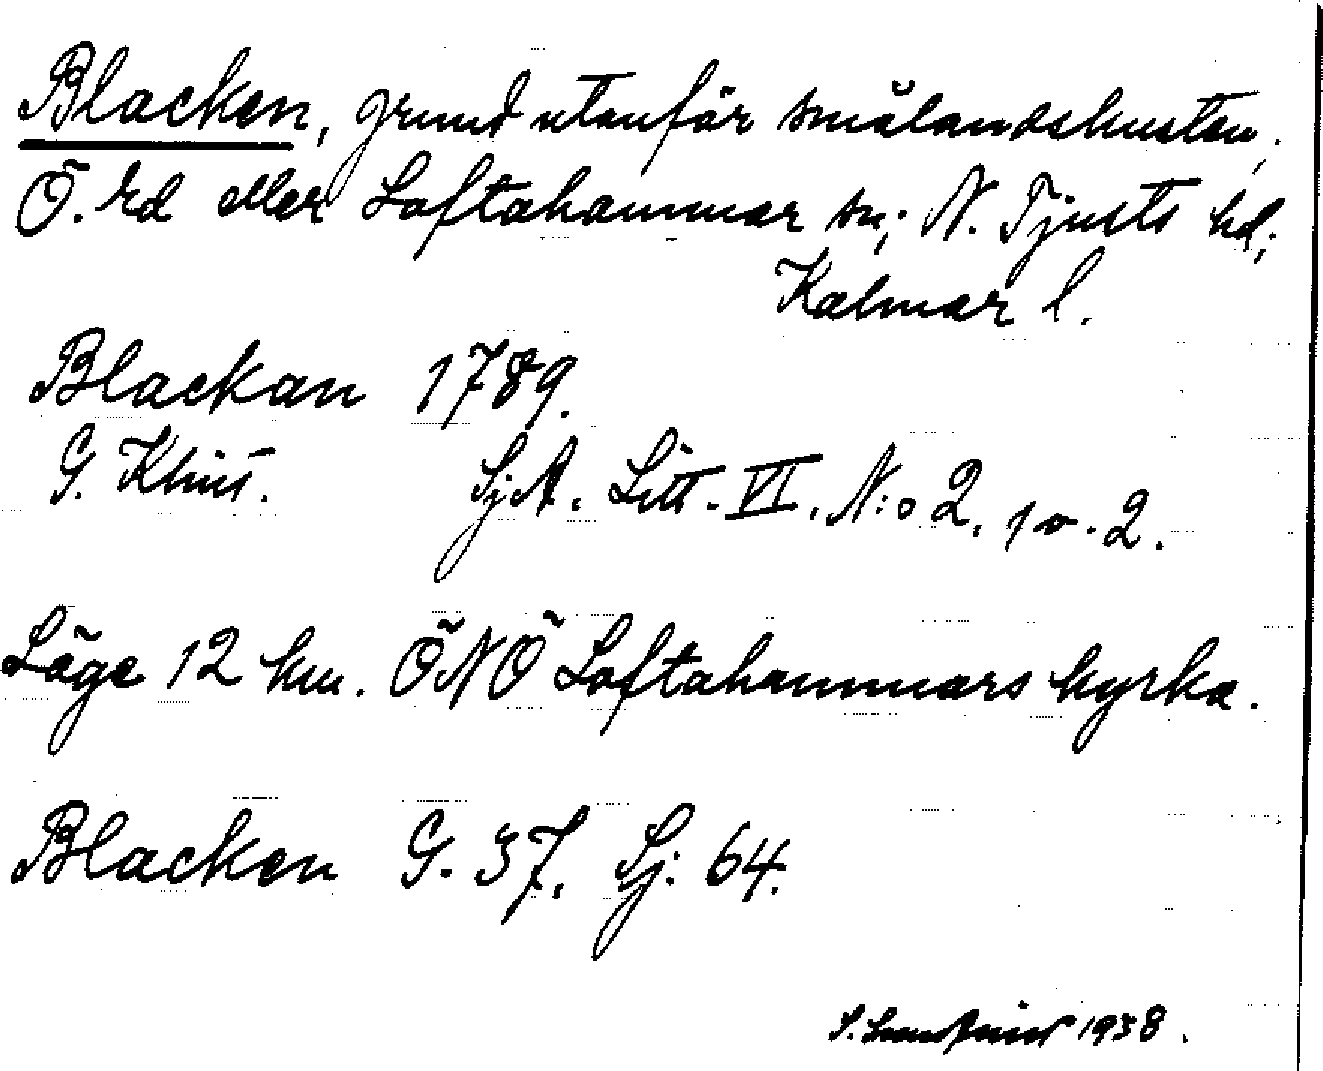 Blacken, grund utanför smålandskusten,
Ö. Ed eller Loftahammar sn; N. Tjusts hd;
Kalmar l.
Blackan 1789.
G. Klint. SjA. Litt. VI. N:o 2.
Läge 12 km. ÖNÖ Loftahammars kyrka.
Blacken G. 37. Sj: 64.
1938.